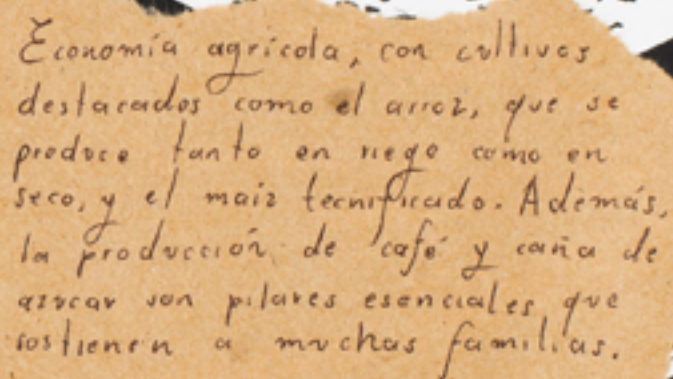 Economía agrícola, con cultivos
destacados como el arroz, que se
produce tanto en riego como en
seco, y el maiz tecnificado. Además,
la producción de café y caña de
azucar son pilares esenciales que
sostienen a muchas familias.